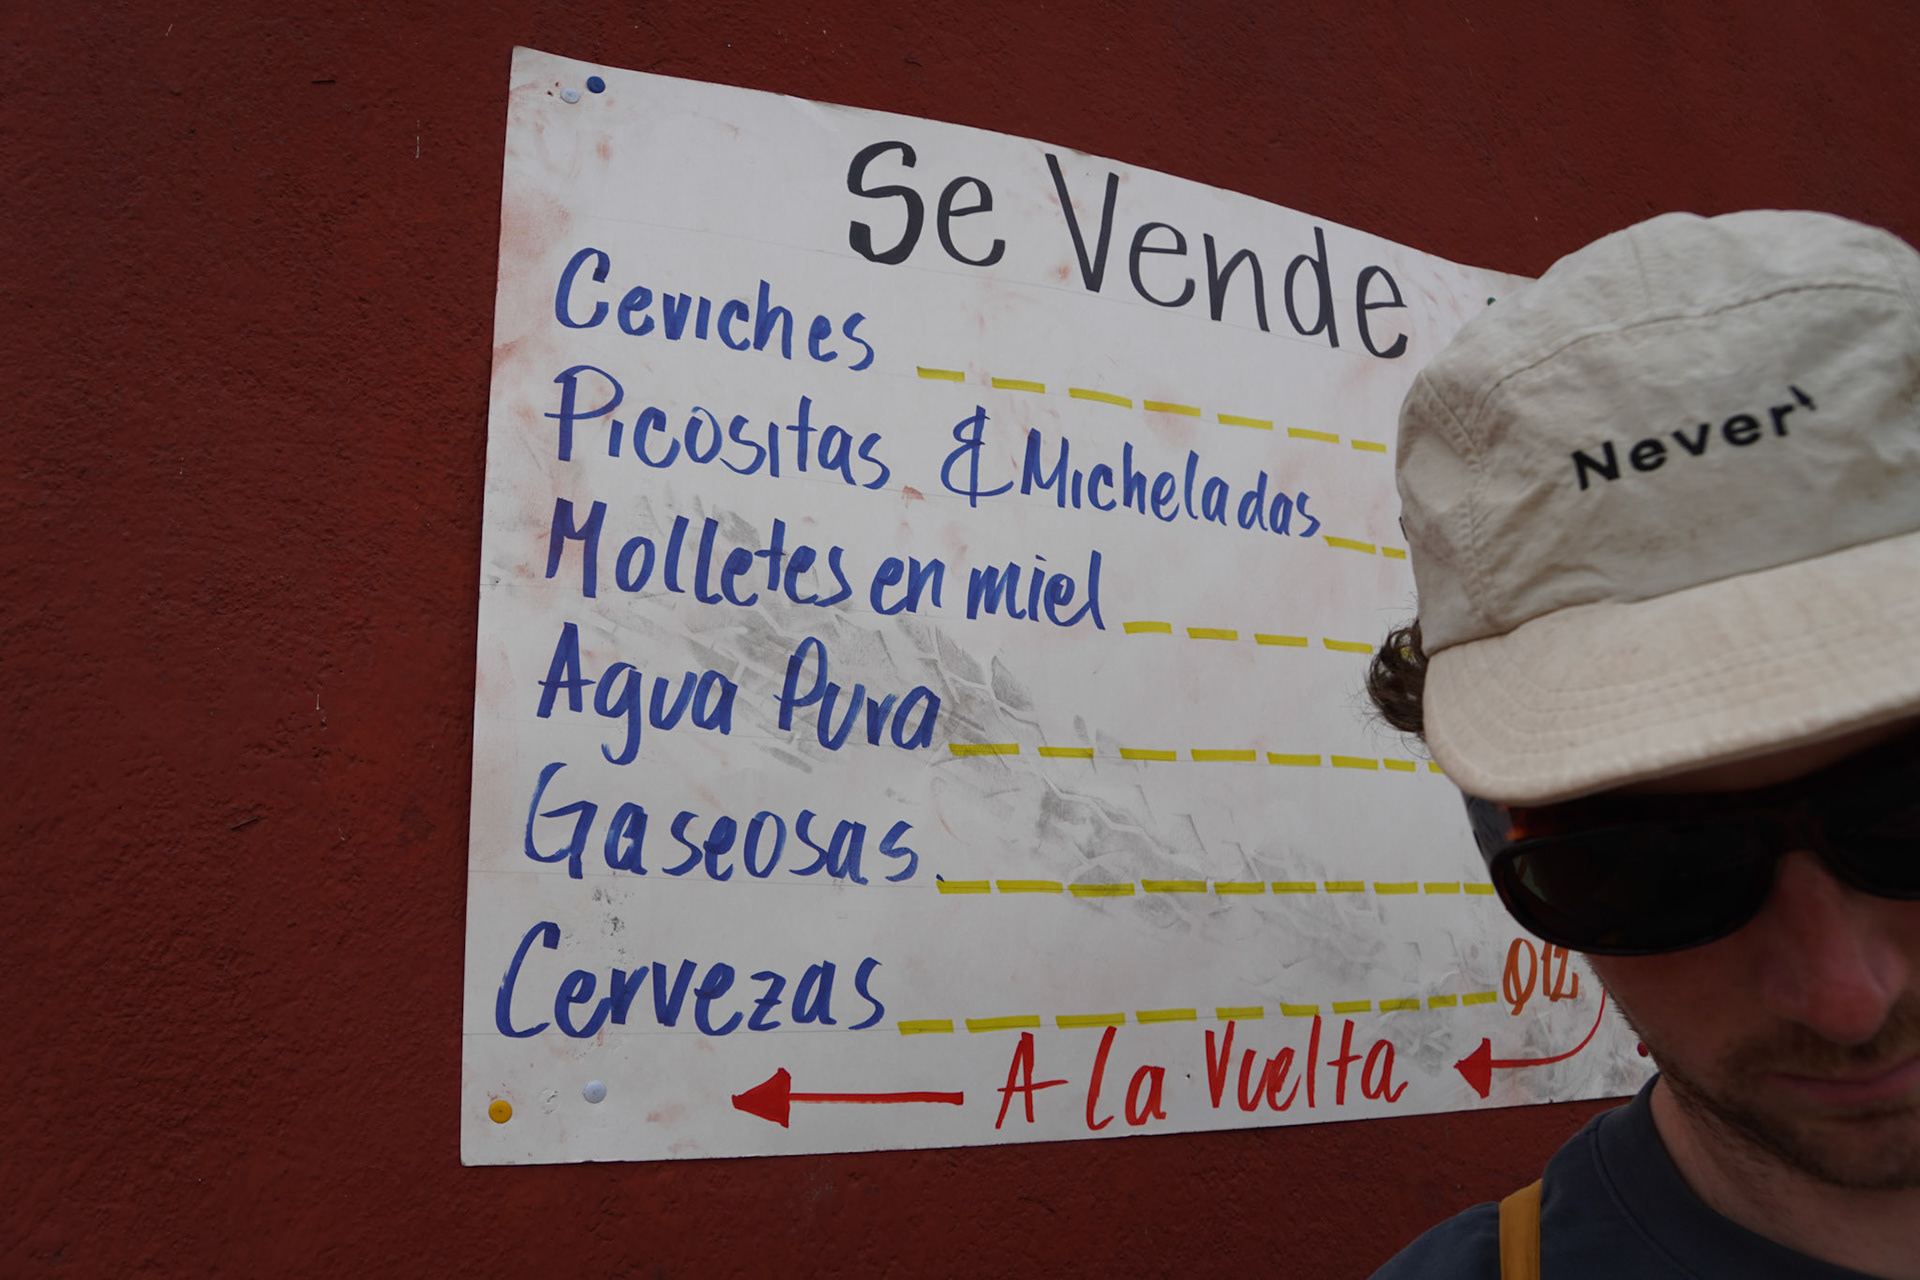 Se Vende
Ceviches
Picositas & Micheladas
Molletes en miel
Agua Pura
Gaseosas
Cervezas Q12
A la Vuelta
Never